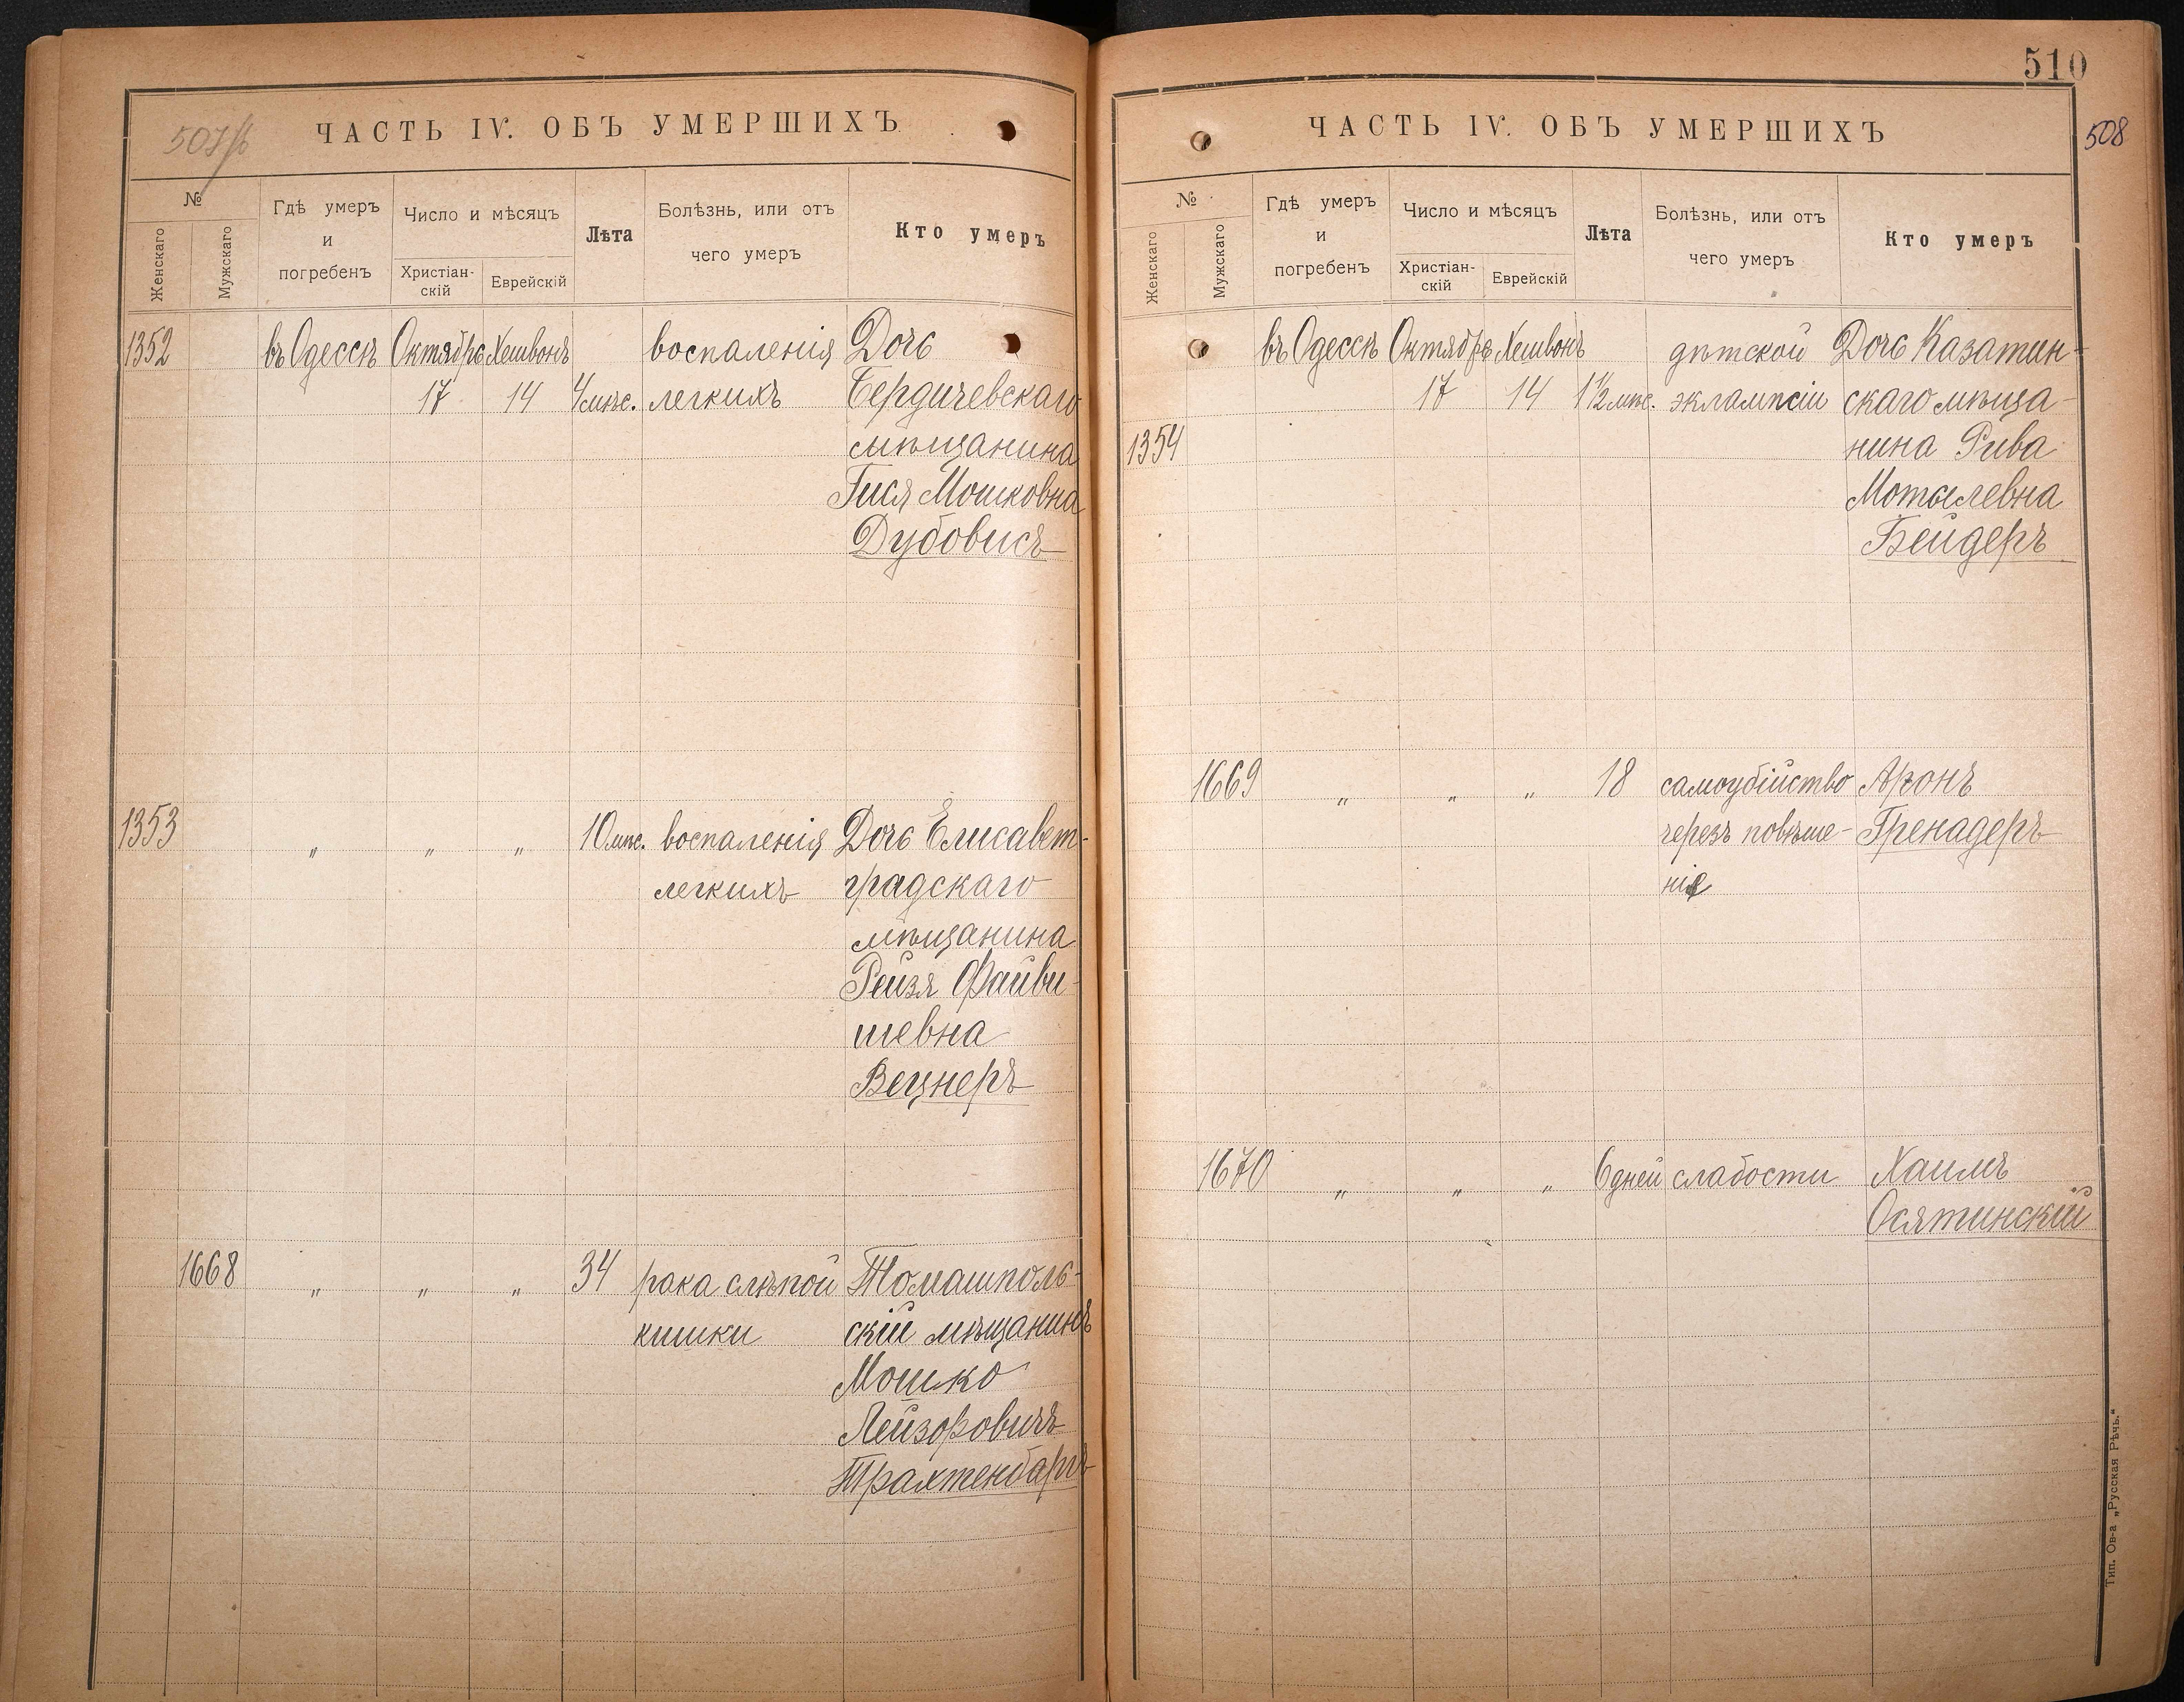 507/б
ЧАСТЬ IV. ОБЪ УМЕРШИХЪ
№
Женскаго
Мужскаго
Гдѣ умеръ
и
погребенъ
Число и мѣсяцъ
Христіан-
скій
Еврейскій
Лѣта
Болѣзнь, или отъ
чего умеръ
Кто умеръ
1352 въ Одессѣ Октябрь Хешвонъ воспаленія Дочь
17 14 4 мѣс. легкихъ Бердичевскаго
мѣщанина
Гися Мошковна
Дубовисъ
1353 " " " 10 мѣс. воспаленія Дочь Елисавет-
легкихъ градскаго
мѣщанина
Рейзя Файви-
шевна
Вецнеръ
1668 " " " 34 рака слѣпой Томашполь-
кишки скій мѣщанинъ
Мошко
Лейзоровичъ
Трахтенбаргъ
510
508
ЧАСТЬ IV. ОБЪ УМЕРШИХЪ
№
Женскаго
Мужскаго
Гдѣ умеръ
и
погребенъ
Число и мѣсяцъ
Христіан-
скій
Еврейскій
Лѣта
Болѣзнь, или отъ
чего умеръ
Кто умеръ
въ Одессѣ Октябрь Хешвонъ дѣтской Дочь Казатин-
17 14 1 1/2 мѣс. эклампсіи скаго мѣща-
1354 нина Рива
Мотелевна
Бейдеръ
1669 " " " 18 самоубійство Аронъ
черезъ повѣше- Гренадеръ
ніе
1670 " " " 6 дней слабости Хаимъ
Осятинскій
Тип. Ов-а „Русская Рѣчь."